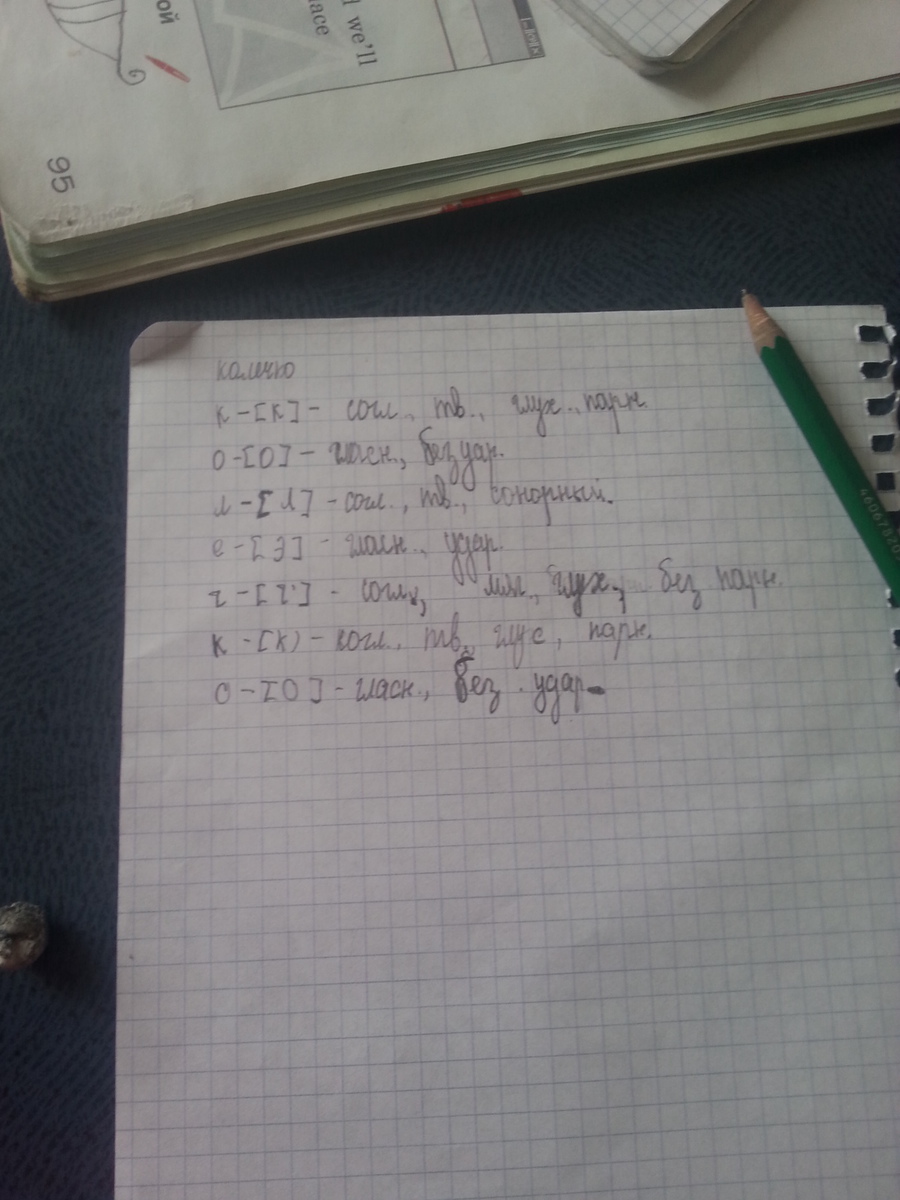 ой
d we'll
lace
95
к - [к] - согл., тв., глух., парн.
о - [о] - гласн., безудар.
л - [л] - согл., тв., сонорный.
э - [э] - гласн., удар.
ч - [ч,] - согл., мяг., глух., без парн.
к - [к) - согл., тв., глус, парн.
о - [о] - гласн., без. удар.